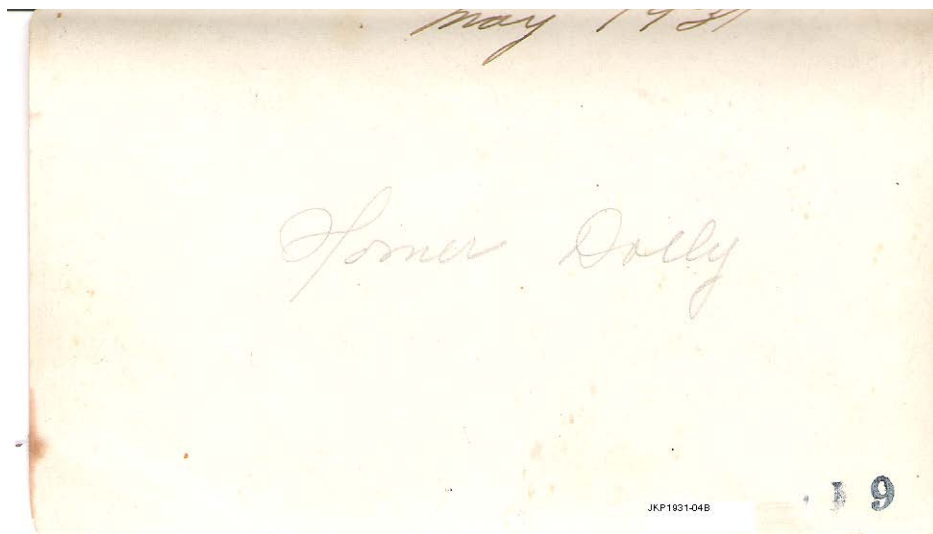 May 1931
Homer Dolly
JKP1931-04B
19